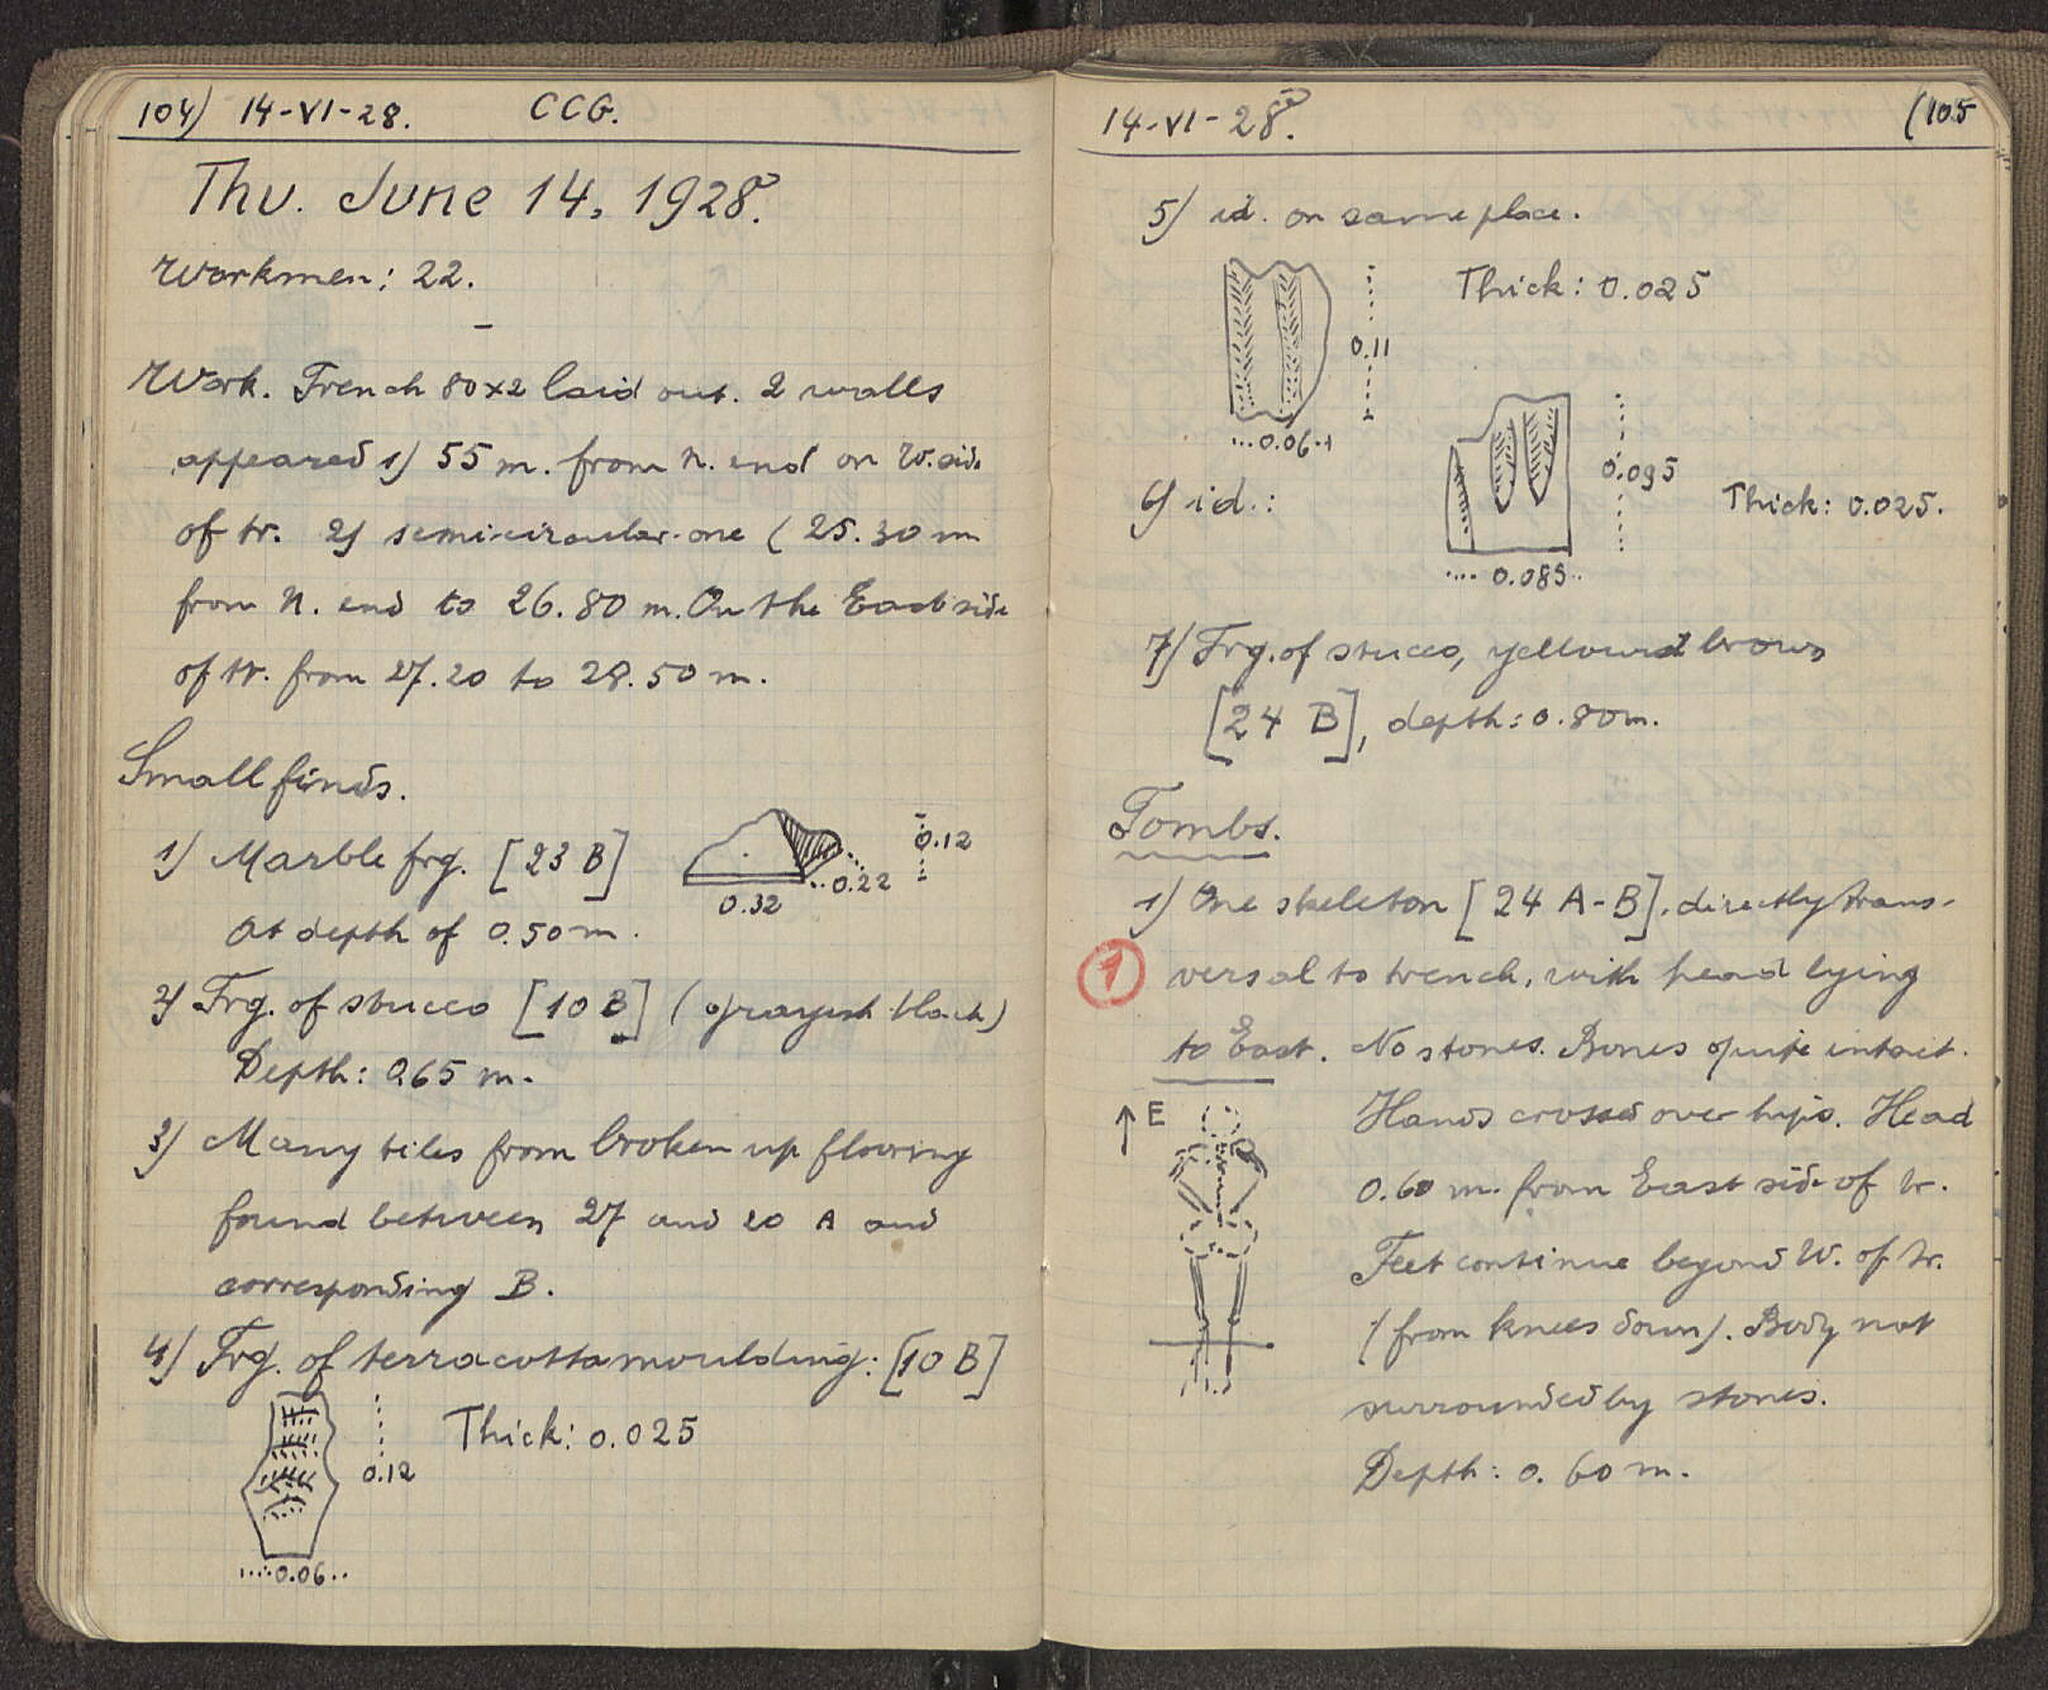 104) 14-VI-28. CCG.
Thu. June 14, 1928.
Workmen: 22.
Work. Trench 80x2 laid out. 2 walls
appeared 1) 55 m. from N. end on W. side
of tr. 2) semicircular one (25.30 m
from N. end to 26.80 m. On the East side
of tr. from 27.20 to 28.50 m.
Small finds.
1) Marble frg. [23 B]
0.12
0.22
0.32
at depth of 0.50 m.
2) Frg. of stucco [10 B] (grayish black)
Depth: 0.65 m.
3) Many tiles from broken up flooring
found between 27 and 20 A and
corresponding B.
4) Frg. of terracotta moulding: [10 B]
Thick: 0.025
0.12
0.06
14-VI-28. (105
5) id. on same place.
Thick: 0.025
0.11
0.06
6) id.:
0.095
Thick: 0.025.
0.085
7) Frg. of stucco, yellow brown
[24 B], depth: 0.80 m.
Tombs.
1) One skeleton [24 A-B], directly trans-
1 versal to trench, with head lying
to East. No stones. Bones quite intact.
E
Hands crossed over hips. Head
0.60 m. from East side of tr.
Feet continue beyond W. of tr.
(from knees down). Body not
surrounded by stones.
Depth: 0.60 m.